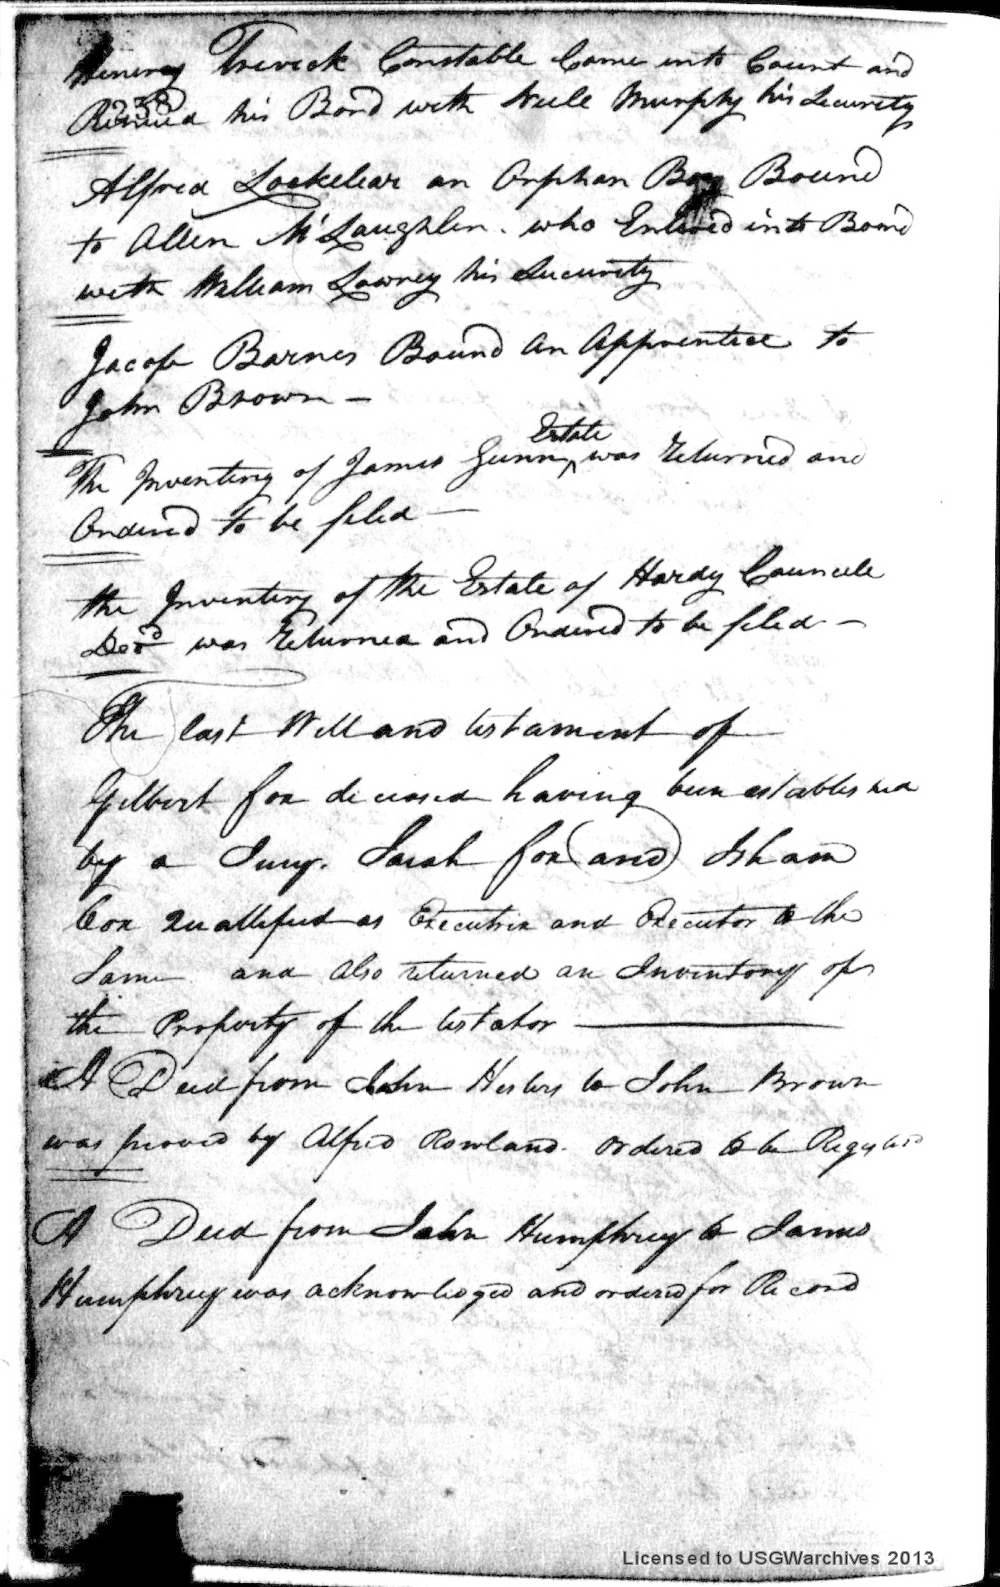 Heneray Trevick Constable Came into Court and
238
Renued his Bond with Neile Murphy his Security
Alfred Lockelear an Orphan Boy Bound
to Allen McLaughlin. who Entered into Bond
with William Lowrey his Security
Jacob Barnes Bound An Apprentice to
John Brown —
Estate
The Inventory of James Gunn ^ was Returned and
Ordered to be filed —
the Inventory of the Estate of Hardy Councele
Decd was Returned and Ordered to be filed —
The last Will and testament of
Gilbert Cox deceased having been established
by a Jury. Sarah Cox (and) Isham
Cox Quallified as Executrix and Executor to the
Same and also returned an Inventory of
the Property of the testator —
A Deed from John Hesters to John Brown
was proved by Alfred Rowland. ordered to be Registered
A Deed from John Humphrey to James
Humphrey was acknowledged and ordered for Record
Licensed to USGWarchives 2013